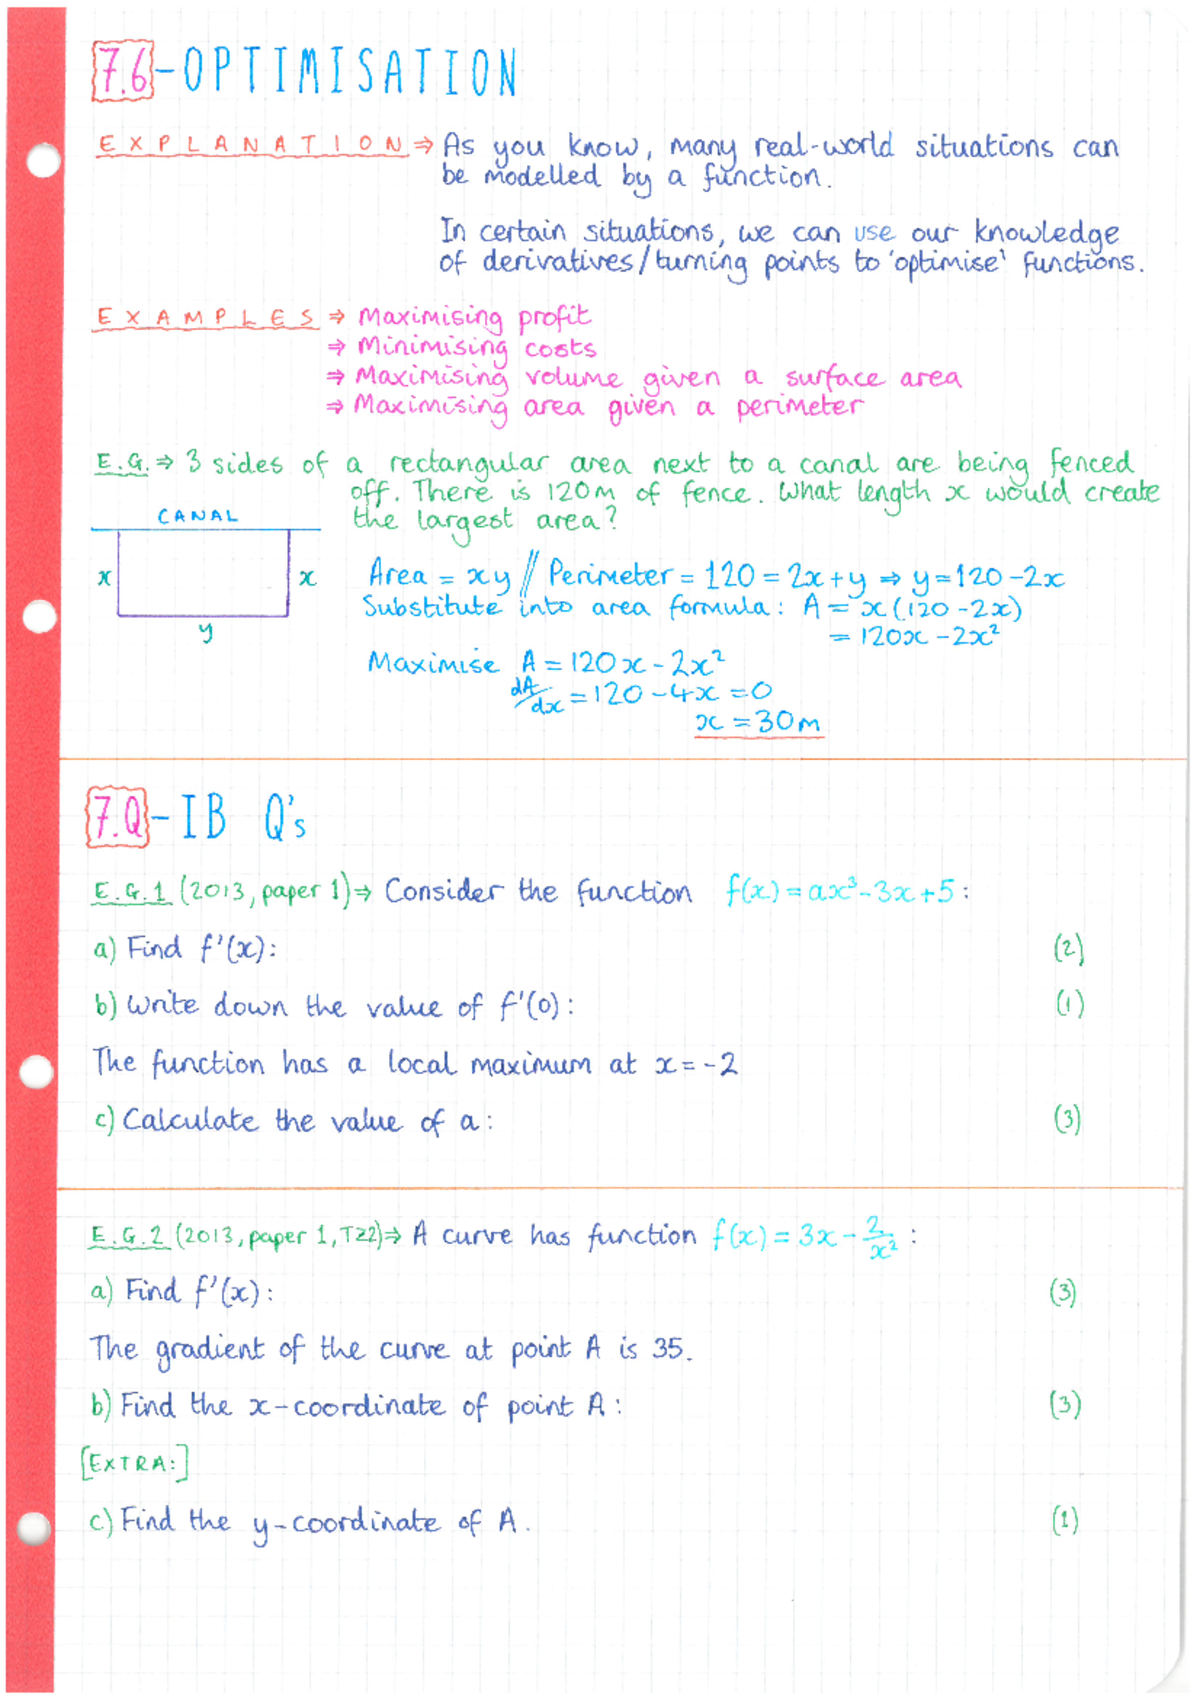 7.6-OPTIMISATION
EXPLANATION ⇒ As you know, many real-world situations can
be modelled by a function.
In certain situations, we can use our knowledge
of derivatives/turning points to 'optimise' functions.
EXAMPLES ⇒ Maximising profit
⇒ Minimising costs
⇒ Maximising volume given a surface area
⇒ Maximising area given a perimeter
E.G. ⇒ 3 sides of a rectangular area next to a canal are being fenced
off. There is 120m of fence. What length x would create
the largest area?
CANAL
x
x
y
Area = xy // Perimeter = 120 = 2x + y ⇒ y = 120 - 2x
Substitute into area formula: A = x(120 - 2x)
= 120x - 2x²
Maximise A = 120x - 2x²
dA/dx = 120 - 4x = 0
x = 30m
7.Q-IB Q's
E.G.1 (2013, paper 1) ⇒ Consider the function f(x) = ax³ - 3x + 5 :
a) Find f'(x): (2)
b) Write down the value of f'(0): (1)
The function has a local maximum at x = -2
c) Calculate the value of a: (3)
E.G.2 (2013, paper 1, TZ2) ⇒ A curve has function f(x) = 3x - 2/x² :
a) Find f'(x): (3)
The gradient of the curve at point A is 35.
b) Find the x-coordinate of point A: (3)
[EXTRA:]
c) Find the y-coordinate of A. (1)